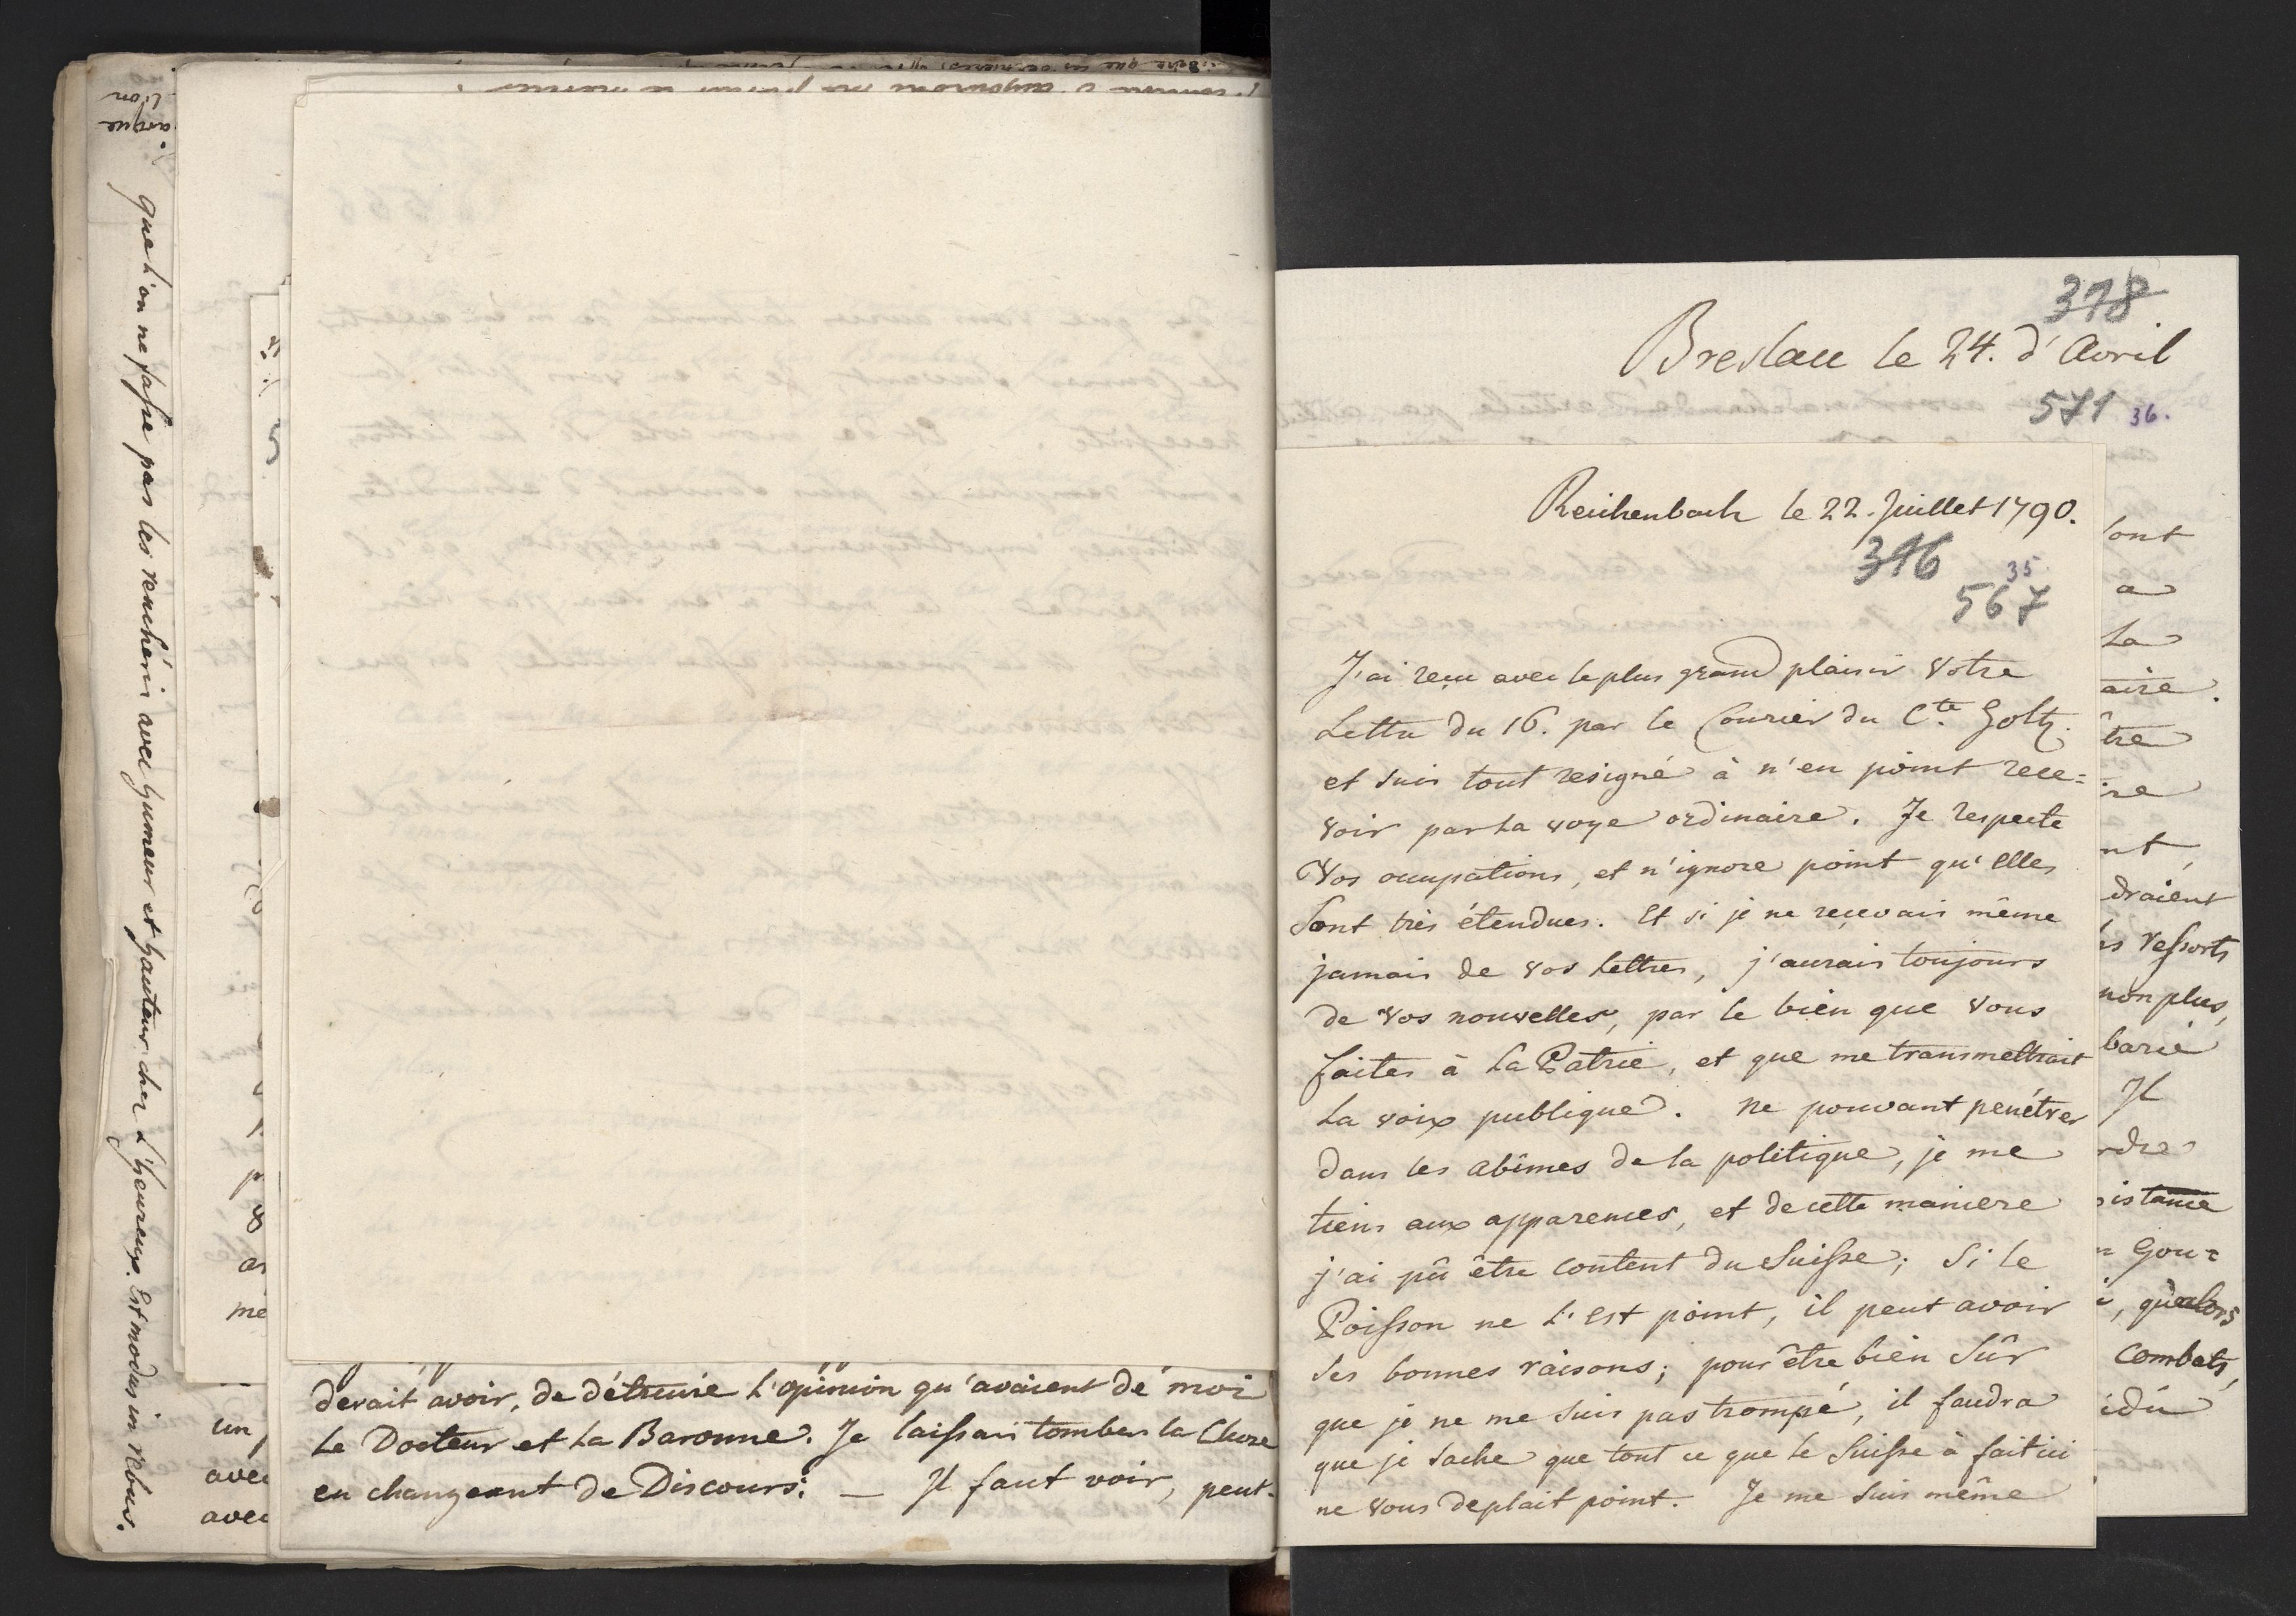 que l'on ne fasse pas les rencheris avec humeur et hauteur chez l'heureux. Est modus in rebus.
me
un
avec
avec
devait avoir, de détruire l'opinion qu'avaient de moi
le Docteur et la Baronne. Je laissais tomber la Chose
en changeant de Discours: — Il faut voir, peut-
378
Breslau le 24. d'Avril
571 36.
Reichenbach le 22. Juillet 1790.
316
35.
567
J'ai reçu avec le plus grand plaisir votre
Lettre du 16. par le Courier du Cte. Goltz.
et suis tout resigné à n'en point rece=
voir par la voye ordinaire. Je respecte
Vos occupations, et n'ignore point qu'elles
Sont très étendues. Et si je ne reçevais même
jamais de vos Lettres, j'aurais toujours
de vos nouvelles, par le bien que vous
faites à la Patrie, et que me transmettrait
la voix publique. Ne pouvant penétrer
dans les abîmes de la politique, je me
tiens aux apparences, et de cette maniere
j'ai pû être content du Suisse; Si le
Poisson ne l'est point, il peut avoir
ses bonnes raisons; pour être bien Sûr
que je ne me suis pas trompé, il faudra
que je sache que tout ce que le Suisse à fait ici
ne vous deplait point. Je me suis même
sont
a
la
aire.
tre
re
nt,
draient
ressorts
non plus,
barie
Il
rdre
istance
Gou=
, qu'alors
combats,
idú